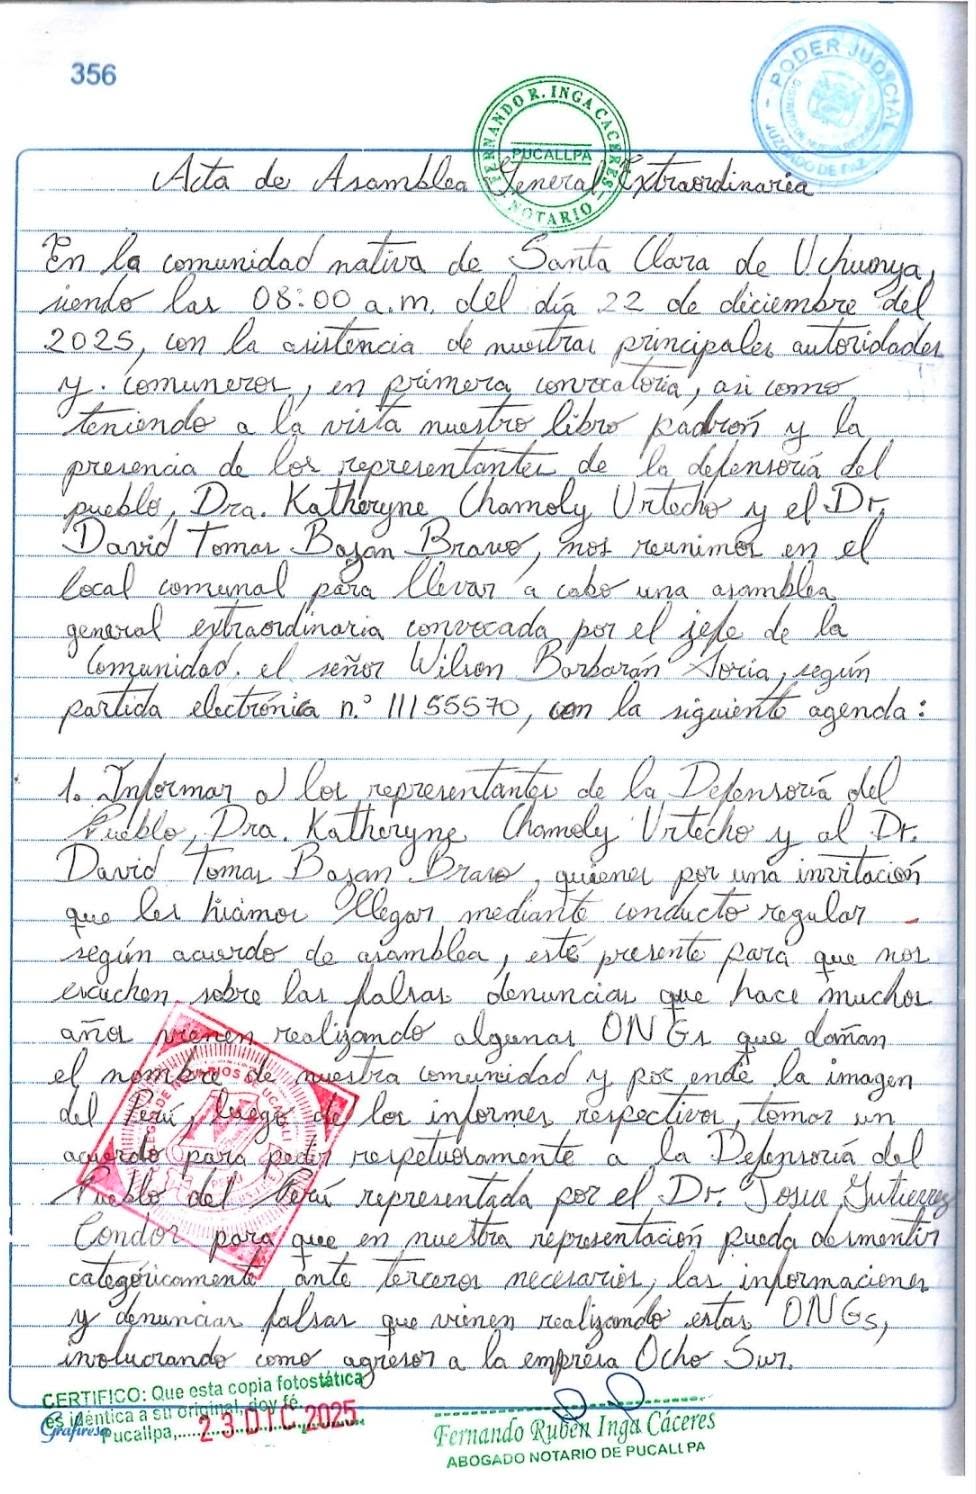 356
PODER JUDICIAL
JUZGADO DE PAZ
FERNANDO R. INGA CACERES
PUCALLPA
NOTARIO
Acta de Asamblea General Extraordinaria
En la comunidad nativa de Santa Clara de Uchunya,
siendo las 08:00 a.m. del día 22 de diciembre del
2025, con la asistencia de nuestras principales autoridades
y. comuneros, en primera convocatoria, asi como
teniendo a la vista nuestro libro padrón y la
presencia de los representantes de la defensoría del
pueblo, Dra. Katheryne Chamoly Urtecho y el Dr.
David Tomas Bazan Bravo, nos reunimos en el
local comunal para llevar a cabo una asamblea
general extraordinaria convocada por el jefe de la
Comunidad. el señor Wilson Barbarán Soria, según
partida electrónica n.º 11155570, con la siguiente agenda:
1. Informar a los representantes de la Defensoría del
Pueblo, Dra. Katheryne Chamoly Urtecho y al Dr.
David Tomas Bazan Bravo, quienes por una invitación
que les hicimos llegar mediante conducto regular
según acuerdo de asamblea, esté presente para que nos
escuchen sobre las falsas denuncias que hace muchos
años vienen realizando algunas ONGs que dañan
el nombre de nuestra comunidad y por ende la imagen
del Perú, luego de los informes respectivos, tomar un
acuerdo para pedir respetuosamente a la Defensoría del
Pueblo del Perú representada por el Dr. Josue Gutierrez
Condor para que en nuestra representación pueda desmentir
categóricamente ante terceros necesarios, las informaciones
y denuncias falsas que vienen realizando estas ONGs,
involucrando como agresor a la empresa Ocho Sur.
CERTIFICO: Que esta copia fotostática
es idéntica a su original, doy fé.
Pucallpa, 23 DIC 2025
Fernando Rubén Inga Cáceres
ABOGADO NOTARIO DE PUCALLPA